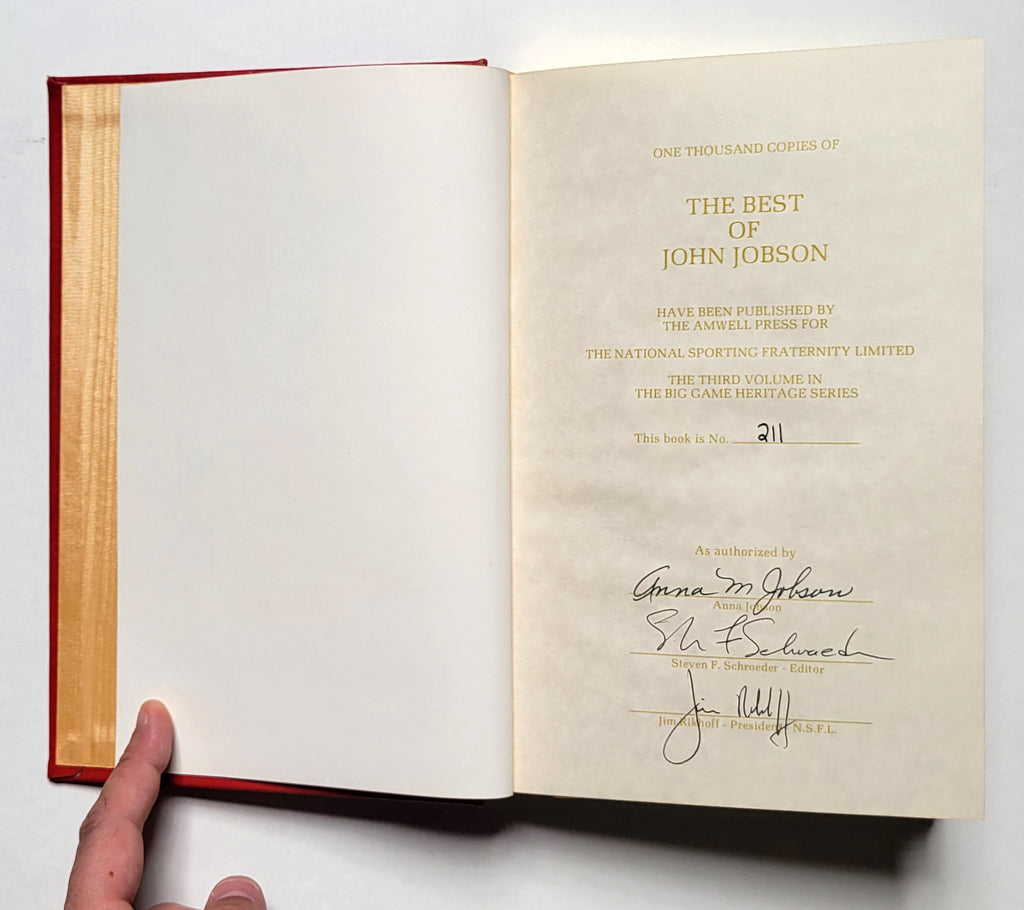 ONE THOUSAND COPIES OF
THE BEST
OF
JOHN JOBSON
HAVE BEEN PUBLISHED BY
THE AMWELL PRESS FOR
THE NATIONAL SPORTING FRATERNITY LIMITED
THE THIRD VOLUME IN
THE BIG GAME HERITAGE SERIES
This book is No. 211
As authorized by
Anna M Jobson
Anna Jobson
F Schroeder
Steven F. Schroeder - Editor
Jim Rikhoff
Jim Rikhoff - President N.S.F.L.